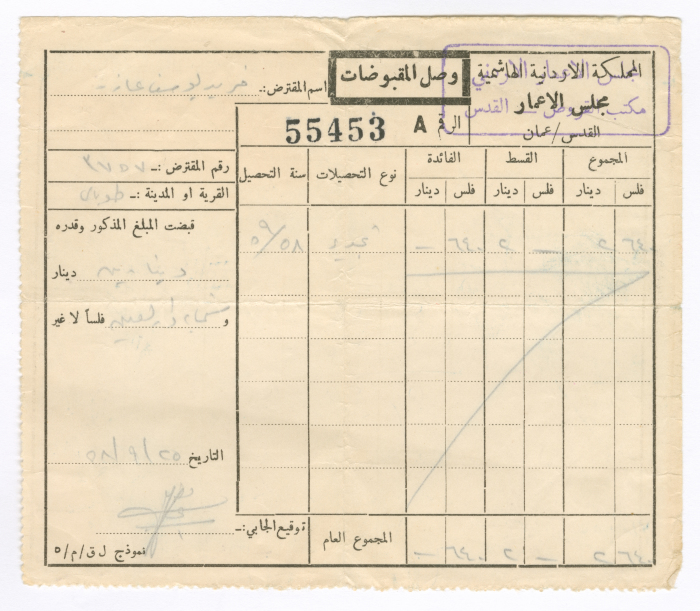 المملكة الاردنية الهاشمية
مجلس الاعمار
القدس/عمان
مجلس الاعمار الاردني
مكتب القروض - القدس
وصل المقبوضات
الرقم A 55453
اسم المقترض:- فريد يوسف
رقم المقترض:- ٣٧٥٧
القرية او المدينة :- طوباس
قبضت المبلغ المذكور وقدره
دينارين دينار
و فلساً لا غير
التاريخ ٥٨/٩/٢٥
توقيع الجابي:-
نموذج ل ق/م/٥
المجموع القسط الفائدة نوع التحصيلات سنة التحصيل
فلس دينار فلس دينار فلس دينار
٦٤٠ ٢ - ٢ ٦٤٠ - تجديد ٥٩/٥٨
المجموع العام
٦٤٠ ٢ - ٢ ٦٤٠ -